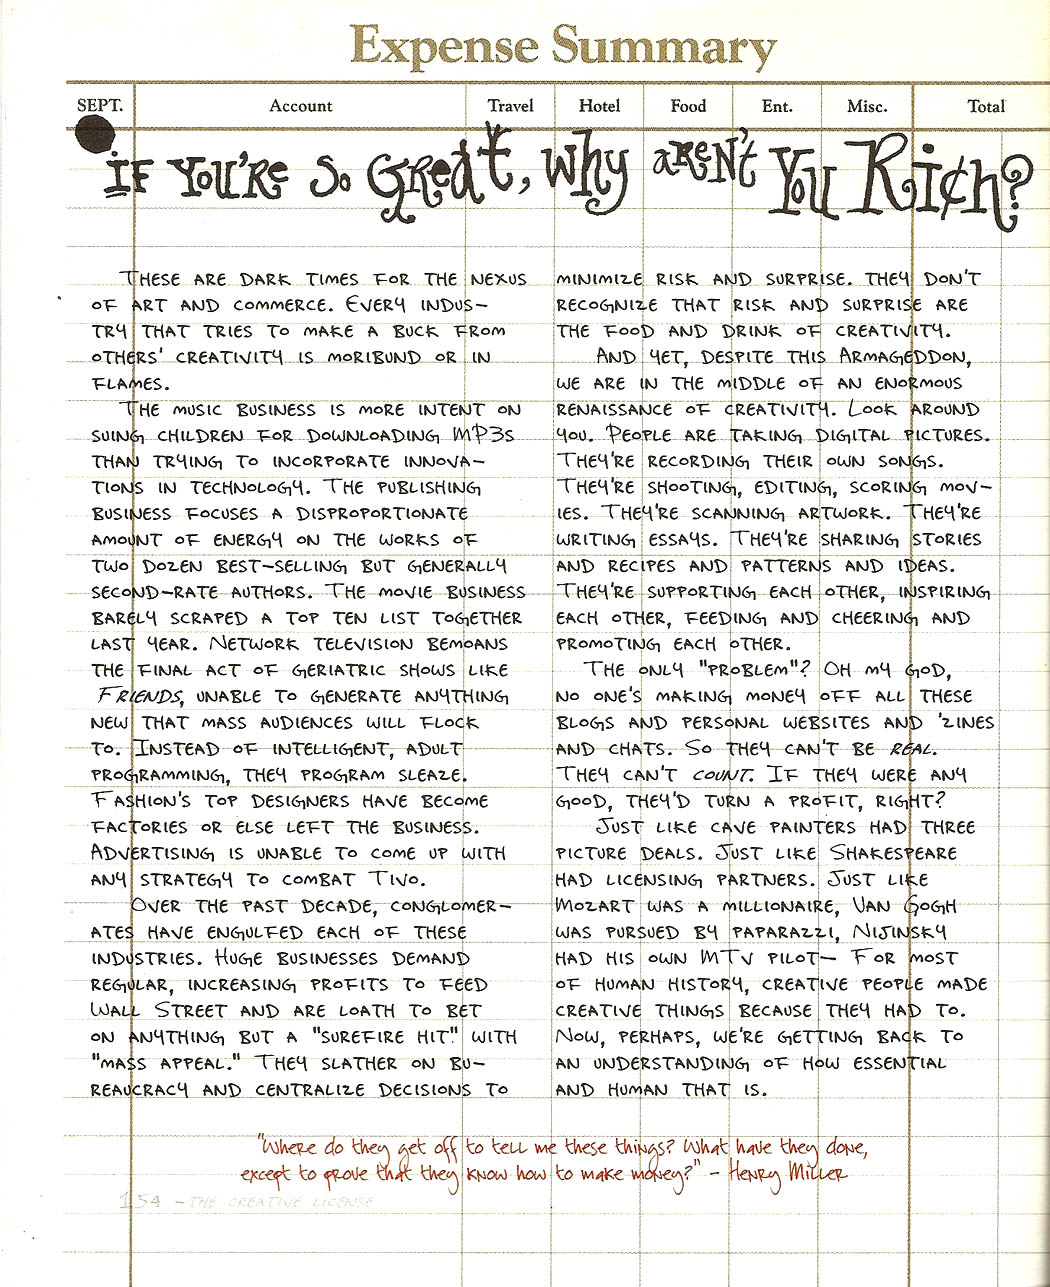 Expense Summary
SEPT. Account Travel Hotel Food Ent. Misc. Total
iF YOU'Re So GReat, Why aReN't You Ri¢h?
THESE ARE DARK TIMES FOR THE NEXUS
OF ART AND COMMERCE. EVERY INDUS-
TRY THAT TRIES TO MAKE A BUCK FROM
OTHERS' CREATIVITY IS MORIBUND OR IN
FLAMES.
THE MUSIC BUSINESS IS MORE INTENT ON
SUING CHILDREN FOR DOWNLOADING MP3S
THAN TRYING TO INCORPORATE INNOVA-
TIONS IN TECHNOLOGY. THE PUBLISHING
BUSINESS FOCUSES A DISPROPORTIONATE
AMOUNT OF ENERGY ON THE WORKS OF
TWO DOZEN BEST-SELLING BUT GENERALLY
SECOND-RATE AUTHORS. THE MOVIE BUSINESS
BARELY SCRAPED A TOP TEN LIST TOGETHER
LAST YEAR. NETWORK TELEVISION BEMOANS
THE FINAL ACT OF GERIATRIC SHOWS LIKE
FRIENDS, UNABLE TO GENERATE ANYTHING
NEW THAT MASS AUDIENCES WILL FLOCK
TO. INSTEAD OF INTELLIGENT, ADULT
PROGRAMMING, THEY PROGRAM SLEAZE.
FASHION'S TOP DESIGNERS HAVE BECOME
FACTORIES OR ELSE LEFT THE BUSINESS.
ADVERTISING IS UNABLE TO COME UP WITH
ANY STRATEGY TO COMBAT TIVO.
OVER THE PAST DECADE, CONGLOMER-
ATES HAVE ENGULFED EACH OF THESE
INDUSTRIES. HUGE BUSINESSES DEMAND
REGULAR, INCREASING PROFITS TO FEED
WALL STREET AND ARE LOATH TO BET
ON ANYTHING BUT A "SUREFIRE HIT" WITH
"MASS APPEAL." THEY SLATHER ON BU-
REAUCRACY AND CENTRALIZE DECISIONS TO
MINIMIZE RISK AND SURPRISE. THEY DON'T
RECOGNIZE THAT RISK AND SURPRISE ARE
THE FOOD AND DRINK OF CREATIVITY.
AND YET, DESPITE THIS ARMAGEDDON,
WE ARE IN THE MIDDLE OF AN ENORMOUS
RENAISSANCE OF CREATIVITY. LOOK AROUND
YOU. PEOPLE ARE TAKING DIGITAL PICTURES.
THEY'RE RECORDING THEIR OWN SONGS.
THEY'RE SHOOTING, EDITING, SCORING MOV-
IES. THEY'RE SCANNING ARTWORK. THEY'RE
WRITING ESSAYS. THEY'RE SHARING STORIES
AND RECIPES AND PATTERNS AND IDEAS.
THEY'RE SUPPORTING EACH OTHER, INSPIRING
EACH OTHER, FEEDING AND CHEERING AND
PROMOTING EACH OTHER.
THE ONLY "PROBLEM"? OH MY GOD,
NO ONE'S MAKING MONEY OFF ALL THESE
BLOGS AND PERSONAL WEBSITES AND 'ZINES
AND CHATS. SO THEY CAN'T BE REAL.
THEY CAN'T COUNT. IF THEY WERE ANY
GOOD, THEY'D TURN A PROFIT, RIGHT?
JUST LIKE CAVE PAINTERS HAD THREE
PICTURE DEALS. JUST LIKE SHAKESPEARE
HAD LICENSING PARTNERS. JUST LIKE
MOZART WAS A MILLIONAIRE, VAN GOGH
WAS PURSUED BY PAPARAZZI, NIJINSKY
HAD HIS OWN MTV PILOT— FOR MOST
OF HUMAN HISTORY, CREATIVE PEOPLE MADE
CREATIVE THINGS BECAUSE THEY HAD TO.
NOW, PERHAPS, WE'RE GETTING BACK TO
AN UNDERSTANDING OF HOW ESSENTIAL
AND HUMAN THAT IS.
"Where do they get off to tell me these things? What have they done,
except to prove that they know how to make money?" - Henry Miller
154 - THE CREATIVE LICENSE